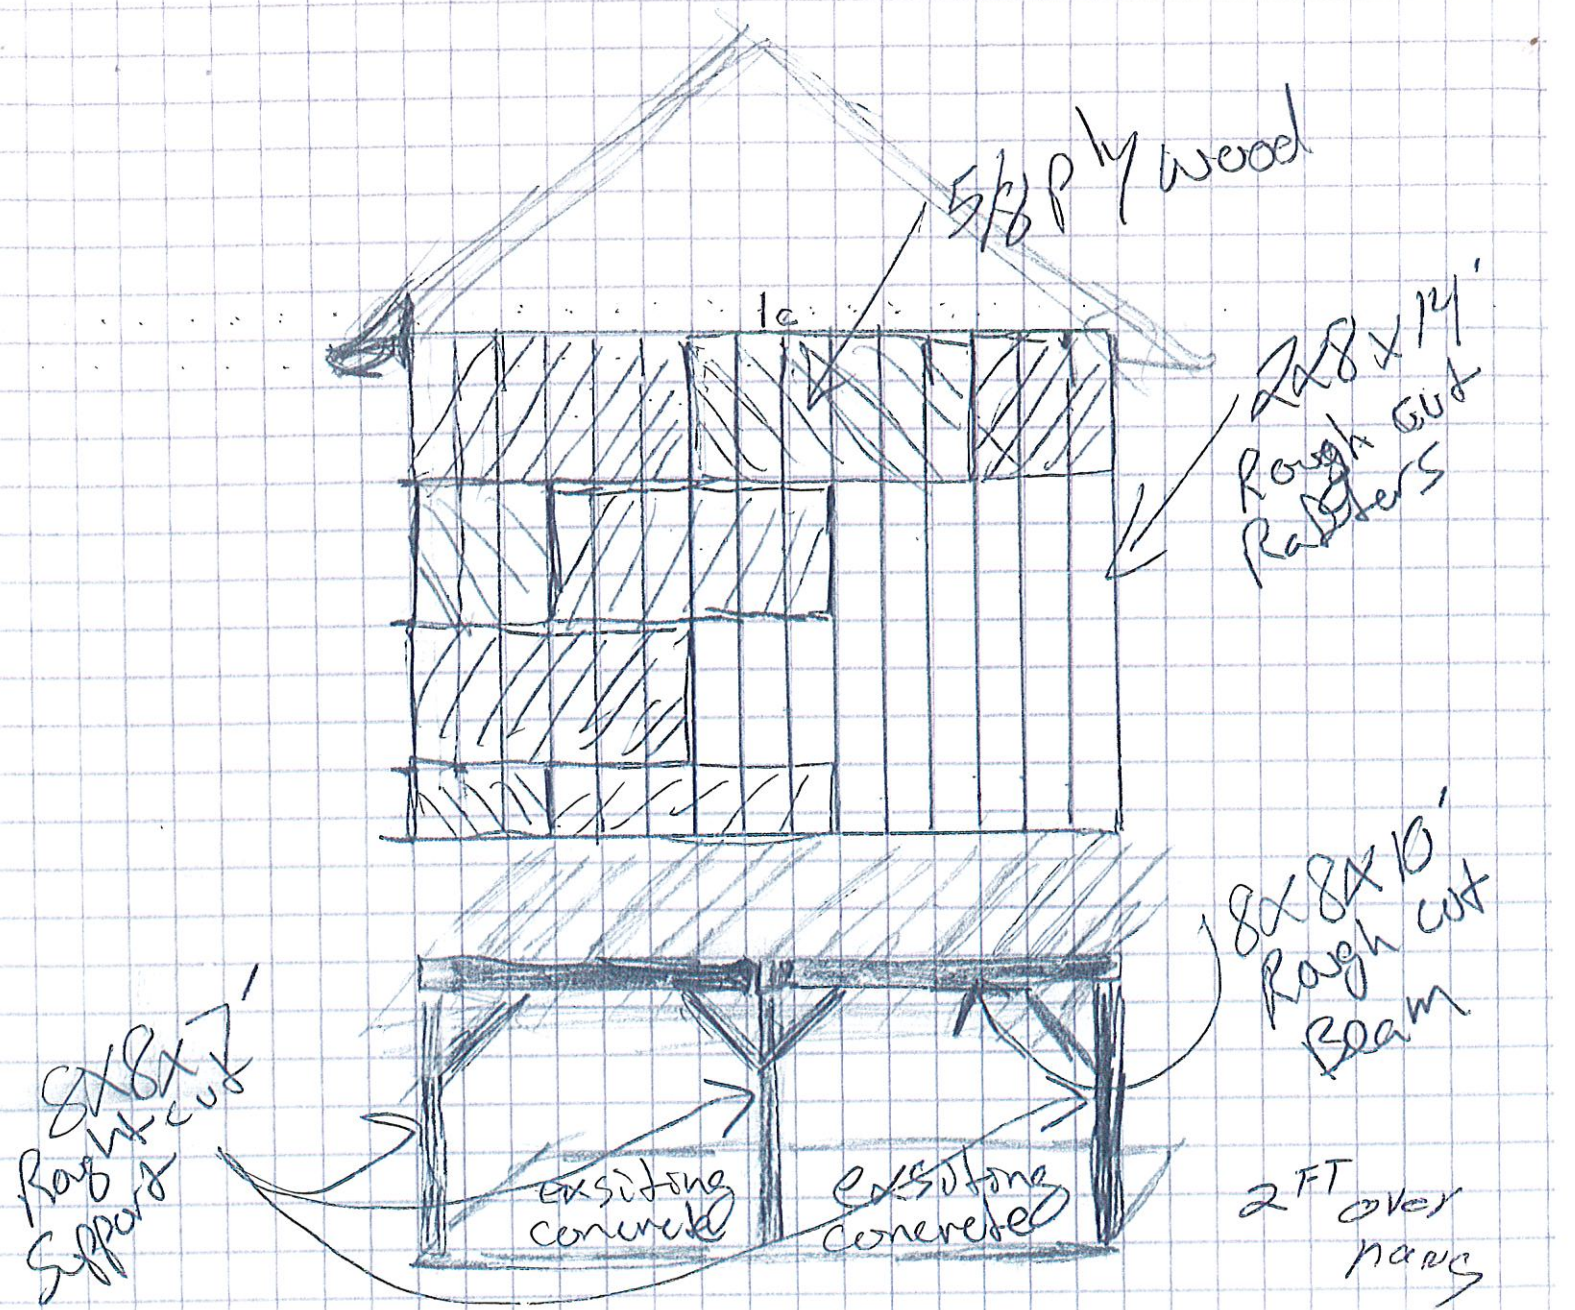 5/8 plywood
1c
2x8x14'
Rough cut
Rafters
8x8x10'
Rough cut
Beam
8x8x7'
Rought cut
Support
exsiting
concrete
exsiting
concrete
2 FT over
hang